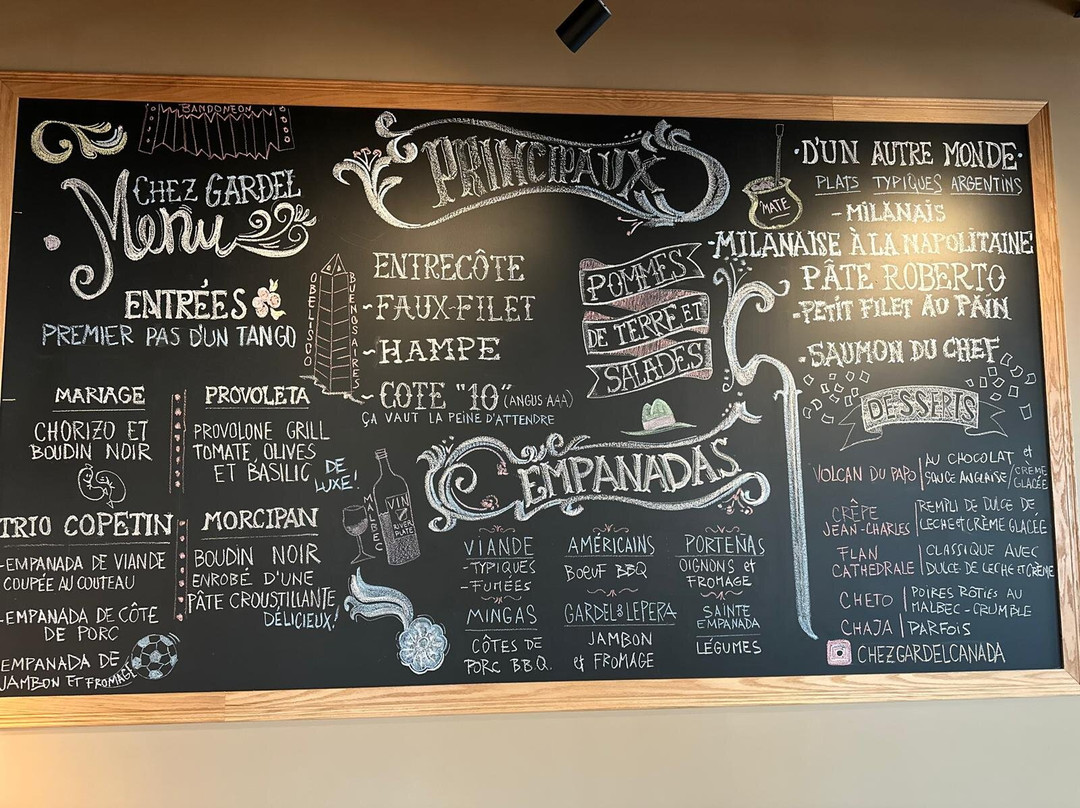 BANDONEON
CHEZ GARDEL
Menu
ENTRÉES
PREMIER PAS D'UN TANGO
MARIAGE
CHORIZO ET
BOUDIN NOIR
PROVOLETA
PROVOLONE GRILL
TOMATE, OLIVES
ET BASILIC
DE
LUXE!
TRIO COPETIN
-EMPANADA DE VIANDE
COUPÉE AU COUTEAU
-EMPANADA DE CÔTE
DE PORC
EMPANADA DE
JAMBON ET FROMAGE
MORCIPAN
BOUDIN NOIR
ENROBÉ D'UNE
PÂTE CROUSTILLANTE,
DÉLICIEUX!
PRINCIPAUX
OBELISCO
BUENOSAIRES
ENTRECÔTE
-FAUX-FILET
-HAMPE
-COTE "10" (ANGUS AAA)
ÇA VAUT LA PEINE D'ATTENDRE
POMMES
DE TERRE ET
SALADES
MALBEC
VIN
RIVER
PLATE
EMPANADAS
VIANDE
-TYPIQUES
-FUMÉES
MINGAS
CÔTES DE
PORC B.B.Q.
AMÉRICAINS
BOEUF BBQ
GARDEL & LEPERA
JAMBON
et FROMAGE
PORTEÑAS
OIGNONS et
FROMAGE
SAINTE
EMPANADA
LÉGUMES
MATE
·D'UN AUTRE MONDE·
PLATS TYPIQUES ARGENTINS
-MILANAIS
-MILANAISE À LA NAPOLITAINE
PÂTE ROBERTO
-PETIT FILET AU PAIN
-SAUMON DU CHEF
DESSERTS
VOLCAN DU PAPO | AU CHOCOLAT et
SAUCE ANGLAISE/CREME
GLACÉE
CRÊPE
JEAN-CHARLES | REMPLI DE DULCE DE
LECHE et CRÈME GLACÉE
FLAN
CATHEDRALE | CLASSIQUE AVEC
DULCE DE LECHE ET CRÈME
CHETO | POIRES RÔTIES AU
MALBEC-CRUMBLE
CHAJA | PARFOIS
CHEZGARDELCANADA